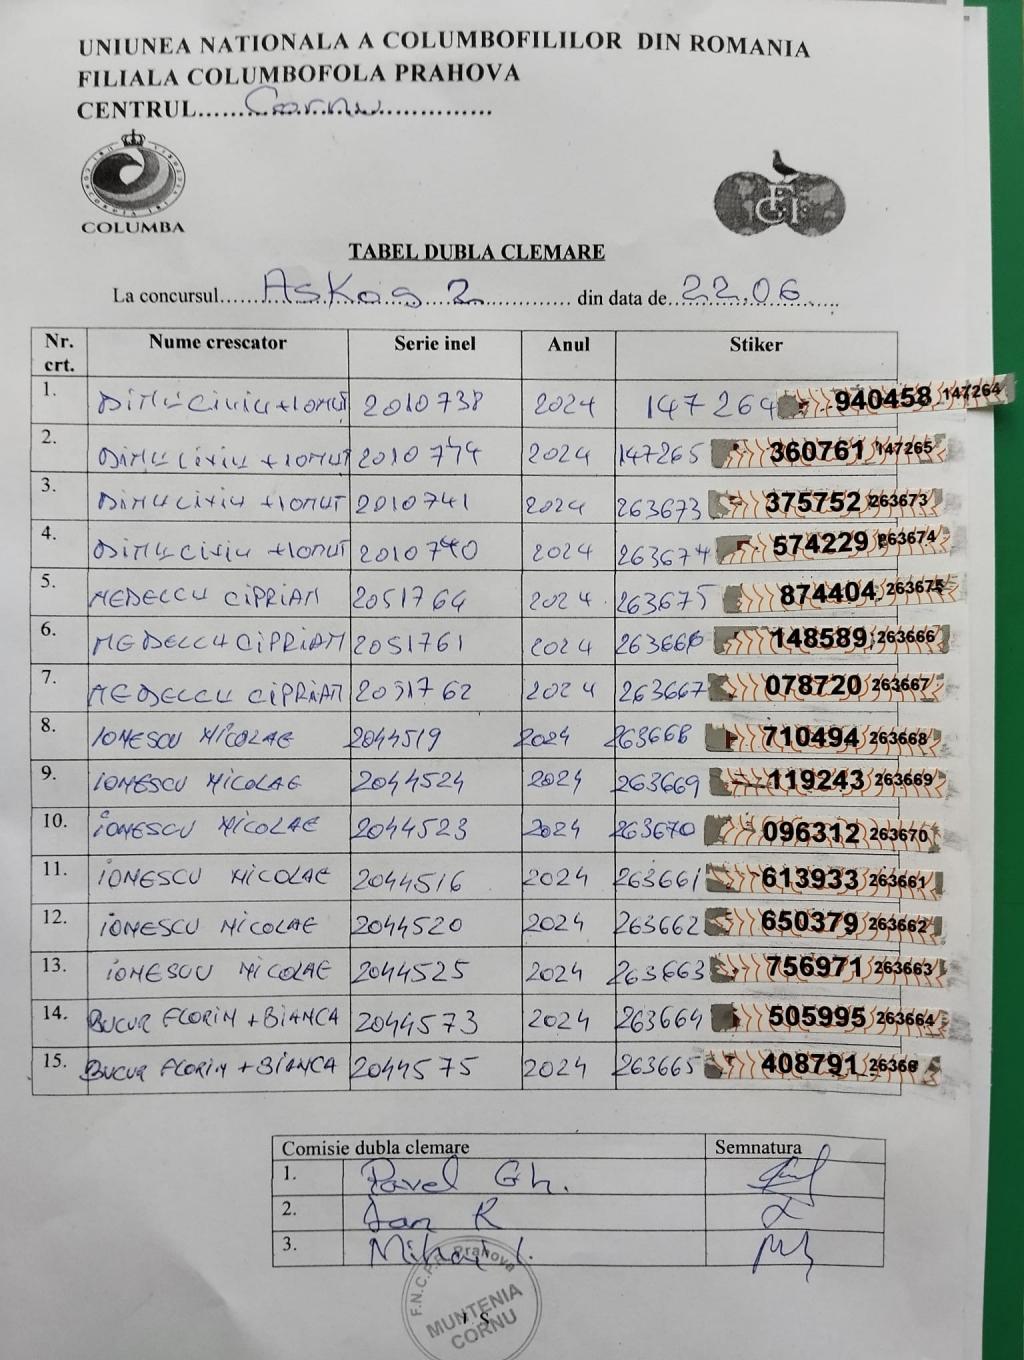 UNIUNEA NATIONALA A COLUMBOFILILOR DIN ROMANIA
FILIALA COLUMBOFOLA PRAHOVA
CENTRUL......Cornu..................
COLUMBA
FCI
TABEL DUBLA CLEMARE
La concursul......Askos 2............ din data de..22.06......
Nr. crt. Nume crescator Serie inel Anul Stiker
1. DIMU LIVIU + IONUT 2010738 2024 147264 940458 147264
2. DIMU LIVIU + IONUT 2010774 2024 147265 360761 147265
3. DIMU LIVIU + IONUT 2010741 2024 263673 375752 263673
4. DIMU LIVIU + IONUT 2010740 2024 263674 574229 263674
5. NEDELCU CIPRIAN 2051764 2024 263675 874404 263675
6. NEDELCU CIPRIAN 2051761 2024 263666 148589 263666
7. NEDELCU CIPRIAN 2051762 2024 263667 078720 263667
8. IONESCU NICOLAE 2044519 2024 263668 710494 263668
9. IONESCU NICOLAE 2044524 2024 263669 119243 263669
10. IONESCU NICOLAE 2044523 2024 263670 096312 263670
11. IONESCU NICOLAE 2044516 2024 263661 613933 263661
12. IONESCU NICOLAE 2044520 2024 263662 650379 263662
13. IONESCU NICOLAE 2044525 2024 263663 756971 263663
14. BUCUR FLORIN + BIANCA 2044573 2024 263664 505995 263664
15. BUCUR FLORIN + BIANCA 2044575 2024 263665 408791 26366
Comisie dubla clemare Semnatura
1. Pavel Gh.
2. Dan R
3. Mihai I.
F.N.C.P.R. Prahova
MUNTENIA
CORNU